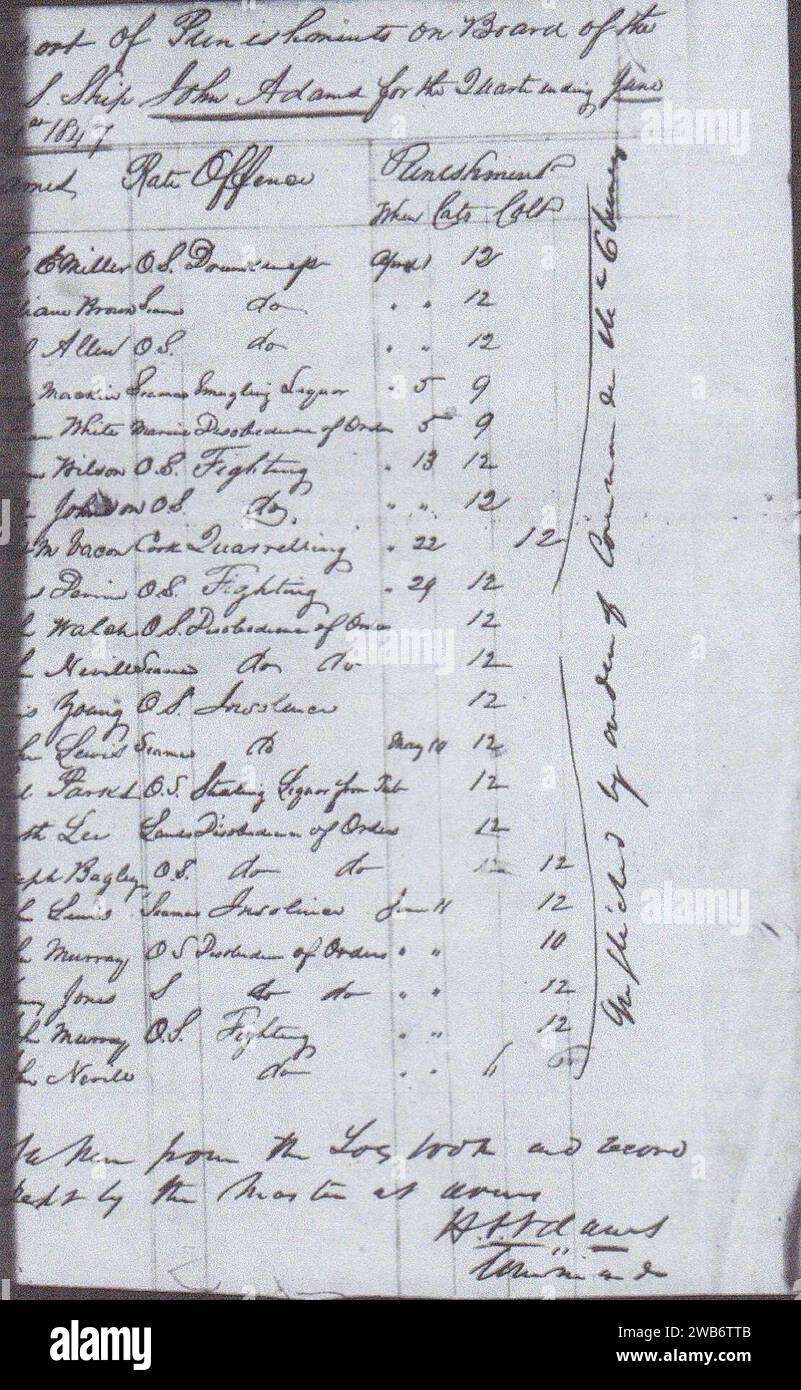 ort of Punishments on Board of the
S. Ship John Adams for the Quarter ending June
1847
ames Rate Offence Punishment
When Cats Colt
E Miller O.S. Drunkeness April 1 12
liam Brown Seam do " " 12
Allen O.S. do " " 12
Mackin Seaman Smugling Liquor " 5 9
White Marine Disobedience of Orders 5 9
Wilson O.S. Fighting " 13 12
Johnson O.S. do " " 12
Cook Quarrelling " 22 12
O.S. Fighting " 29 12
Walsh O.S. Disobedience of Orders 12
Neville Seaman do do 12
Young O.S. Insolence 12
hn Lewis Seaman do May 10 12
Parks O.S. Stealing Liquor from Tub 12
th Lee Lands Disobedience of Orders 12
eph Bagley O.S. do do 12
Lewis Seaman Insolence June 11 12
Murray O S Disobedien of Orders " " 10
Jones S do do " " 12
hn Murray O.S. Fighting " " 12
hn Neville do " " 6
Inflicted by order of Commander
Taken from the Log book and record
kept by the Master at arms
Adams
Command
alamy
alamy
alamy
alamy
Image ID: 2WB6TTB
www.alamy.com